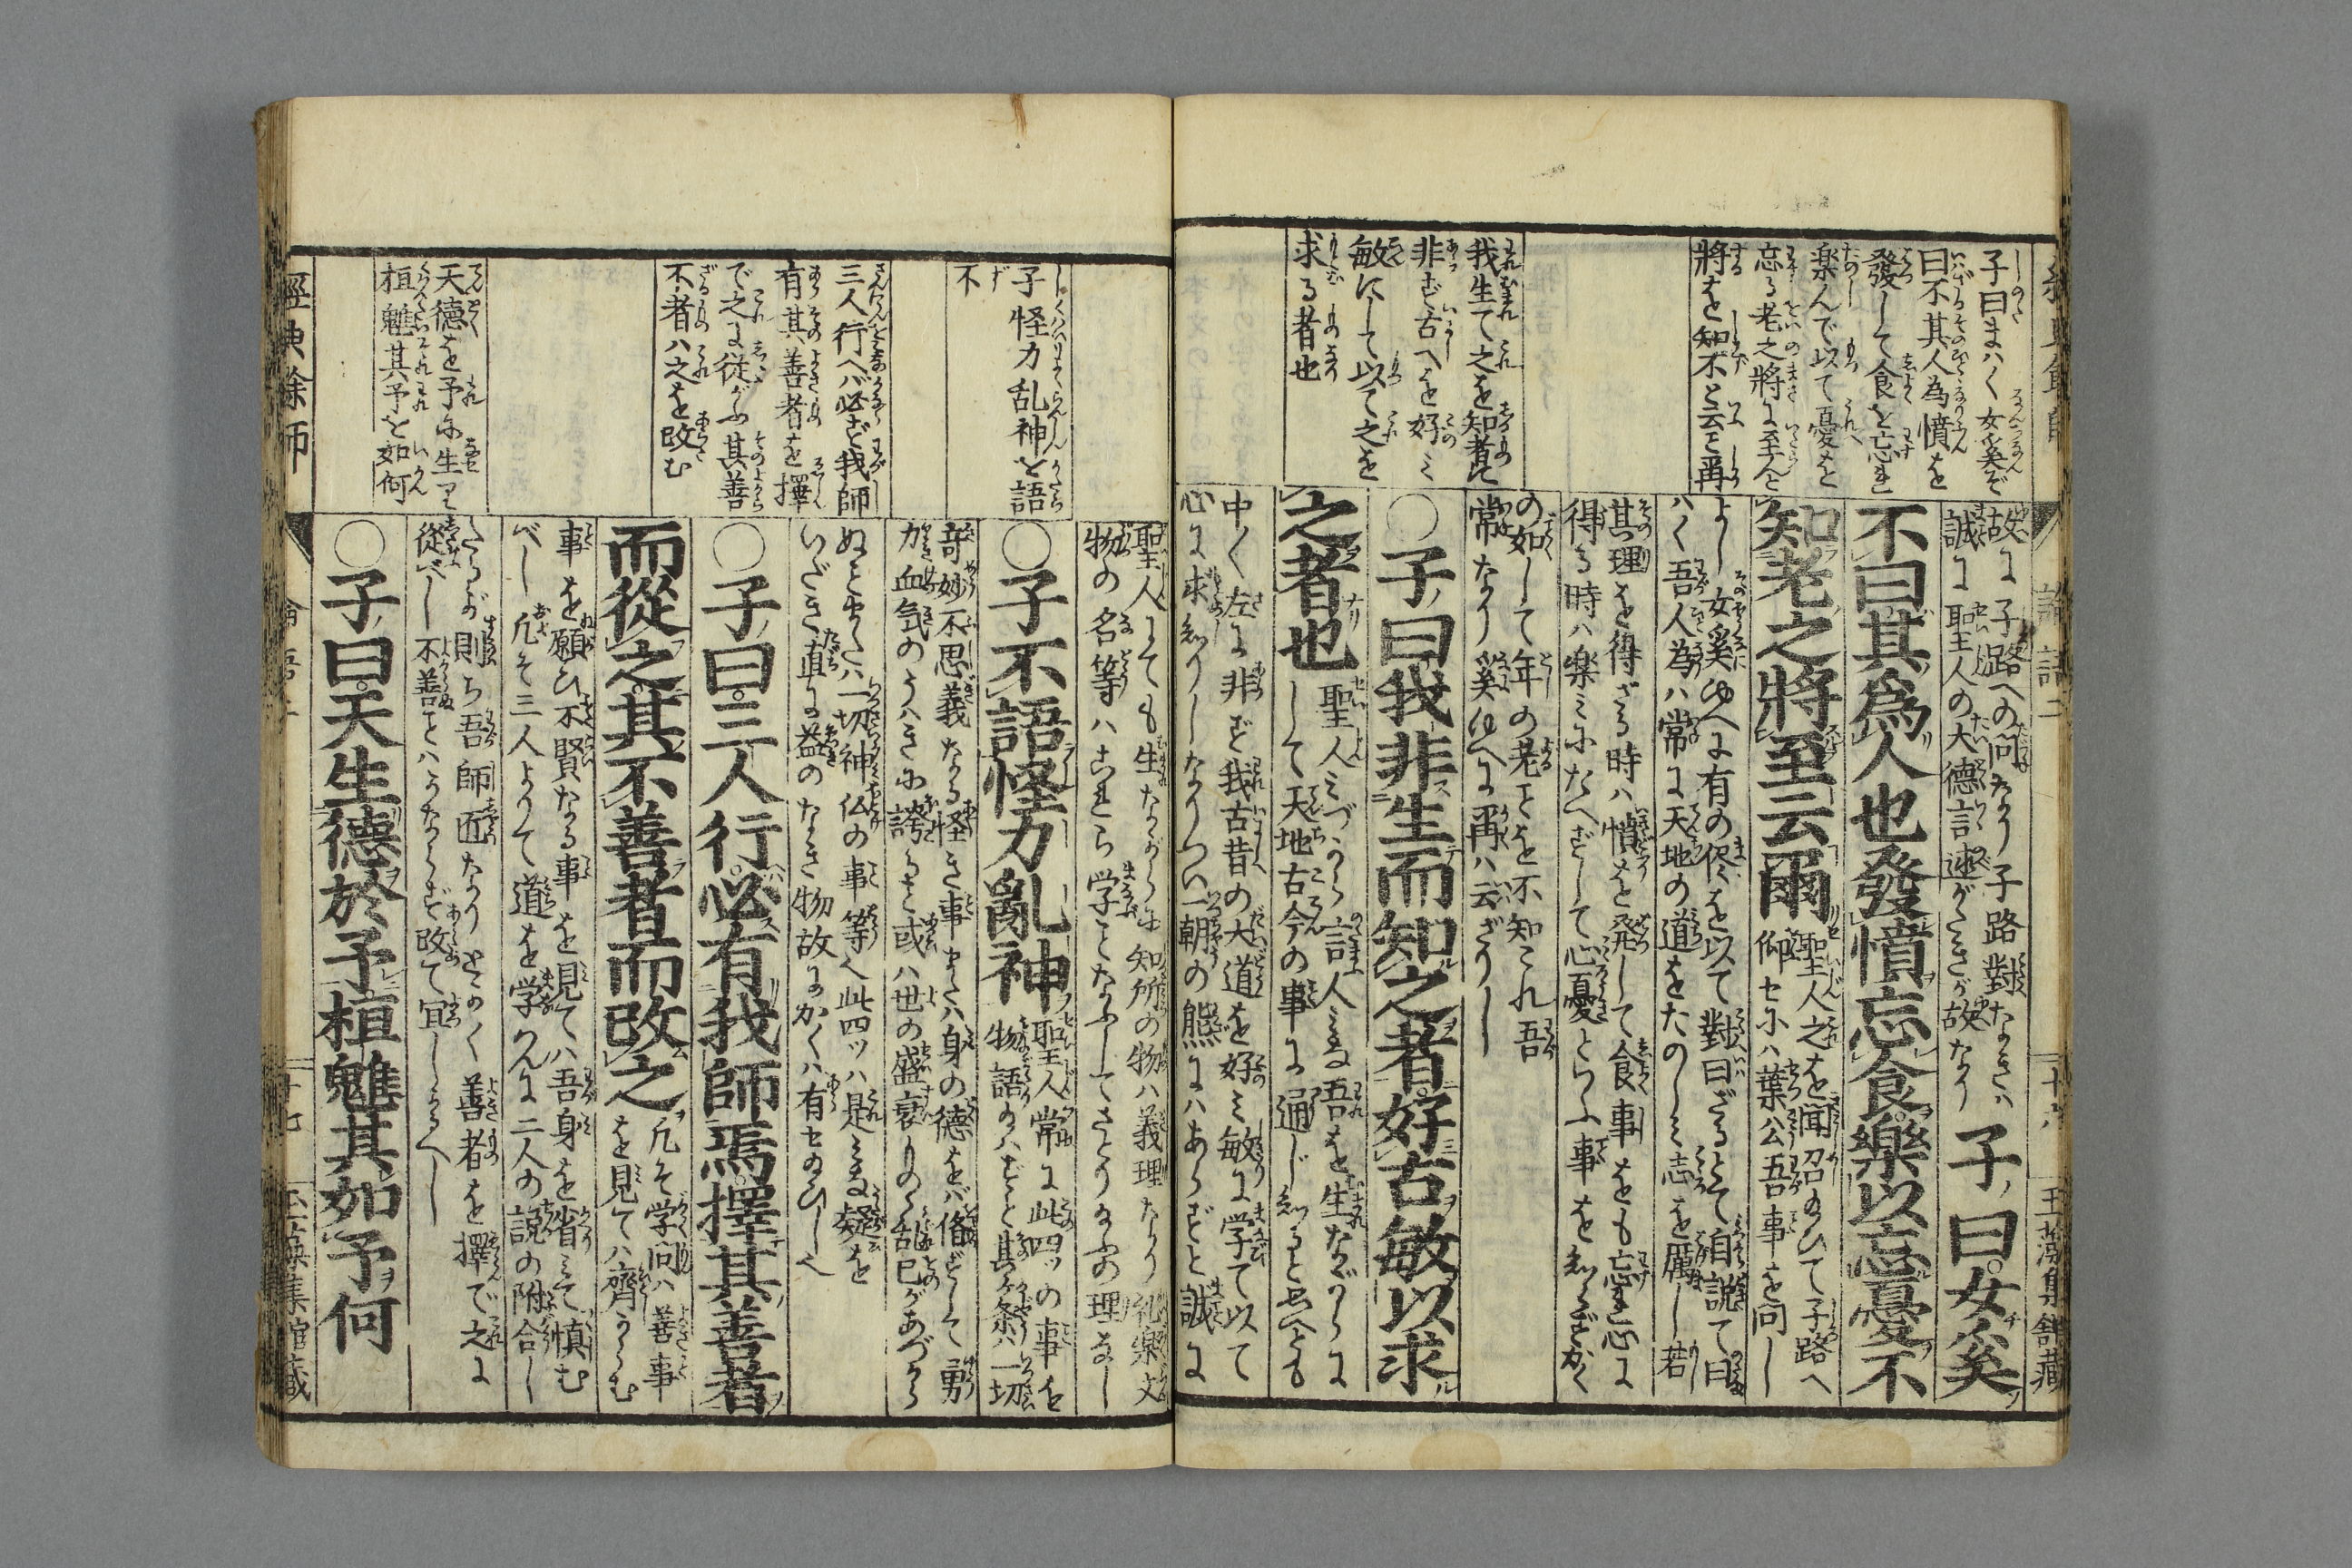 子曰まハく女奚ぞ
曰不其人為憤を
發して食を忘れ
楽んで以て憂を
忘る老之將に至んと
將を知不と云こと爾
我生て之を知者に
非ず古へを好ミ
敏にして以て之を
求る者也
故に子路への問なり子路對なきハ
誠に聖人の大德言逑がたきが故なり
子曰女奚
不曰其爲人也發憤忘食樂以忘憂不
知老之將至云爾
聖人之を聞召のひて子路へ
仰セにハ葉公吾事を問し
よし女奚ゆへに有の侭を以て對曰ざるとて自説て曰
ハく吾人為ハ常に天地の道をたのしミ志を厲し若
其理を得ざる時ハ憤を発して食事をも忘れ心に
得る時ハ楽ミにたへずして心憂といふ事をしらずかく
の如して年の老ことを不知これ吾
常なり奚ゆへに再ハ云ざりし
○子曰我非生而知之者好古敏以求
之者也
聖人ミづから言人ミな吾を生ながらに
して天地古今の事に通じしると思へども
中〱左に非ず我古昔の大道を好ミ敏に学て以て
心に求しりしなりつい一朝の熊にハあらずと誠に
論語二
子怪力乱神を語
不
三人行へバ必ず我師
有其善者を擇
で之に從がふ其善
不者ハ之を改む
天德を予に生り
桓魋其予を如何
聖人にても生ながらに知所の物ハ義理なり礼楽文
物の名等ハこれら学ことなふしてさとりなふの理なし
○子不語怪力亂神
聖人常に此四ッの事を
物語にハずと其ケ条ハ一切
奇妙不思義なる怪き事またハ身の德をバ脩ずして勇
力血気のうハきに誇ること或ハ世の盛衰りのゝ乱已があづから
ぬことまたハ一切神仏の事等へ此四ッハ是ミな疑を
いだき直に益のなき物故にかくハ有セのひしへ
○子曰三人行必有我師焉擇其善者
而從之其不善者而改之
凡そ学問ハ善事
を見てハ齊からむ
事を願ひ不賢なる事を見てハ吾身を省ミて慎む
べし凡そ三人よりて道を学んに二人の説の附合し
たるが則ち吾師匠なりとかく善者を擇で之に
從べし不善とハよからず改て宜しかるべし
○子曰天生德於予桓魋其如予何
經典餘師